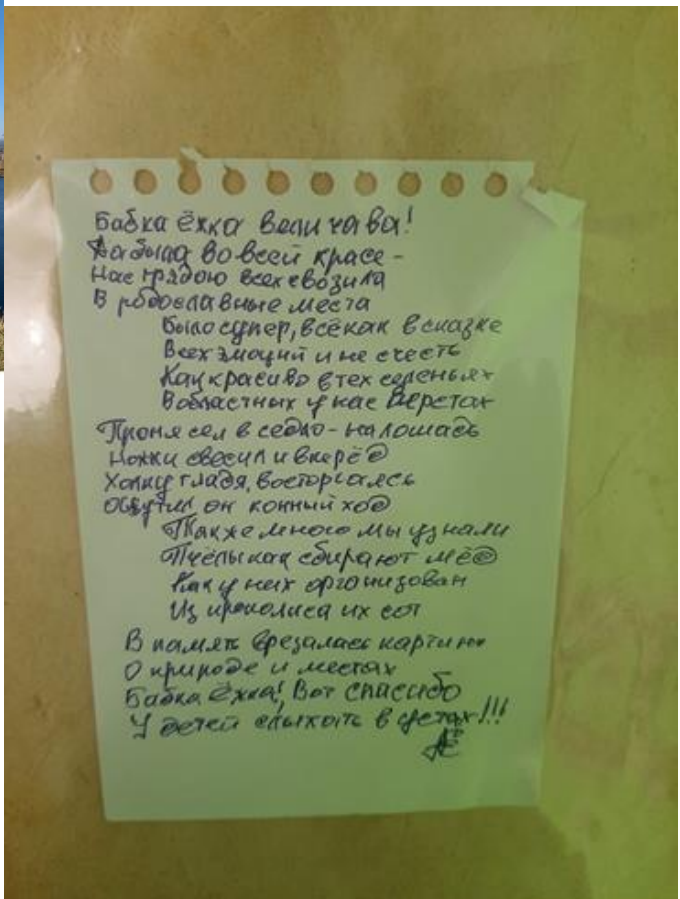 Бабка ёжка величава!
Да была во всей красе -
Нас грядою всех свозила
В родославные места
Было супер, всё как в сказке
Всех эмоций и не счесть
Как красиво в тех селеньях
В областных у нас верстах
Проня сел в седло - на лошадь
Ножки свесил и вперёд
Холку гладя, восторгаясь
Ощутил он конный ход
Также много мы узнали
Пчёлы как сбирают мёд
Как у них организован
Из прополиса их сот
В память врезалась картина
О природе и местах
Бабка ёжка! Вот спасибо
У детей слыхать в устах!!!